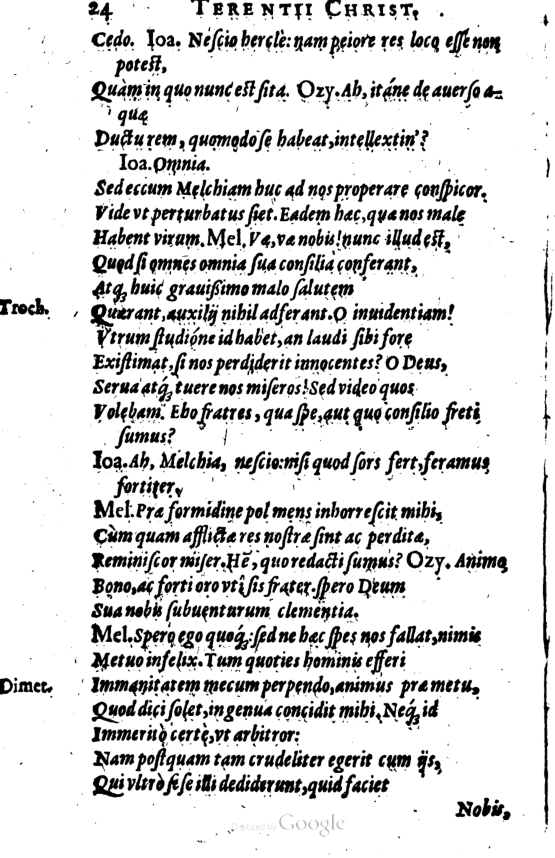 24 TERENTII CHRIST.
Cedo. Ioa. Nescio hercle: nam peiore res loco esse non
potest,
Quàm in quo nunc est sita. Ozy. Ah, itáne de auerso a-
quæ
Ductu rem, quomodo se habeat, intellextin'?
Ioa. Omnia.
Sed eccum Melchiam huc ad nos properare conspicor.
Vide vt perturbatus siet. Eadem hæc, quæ nos male
Habent virum. Mel. Væ, væ nobis! nunc illud est,
Quod si omnes omnia sua consilia conferant,
Atq; huic grauißimo malo salutem
Troch. Quærant, auxilij nihil adferant. O inuidentiam!
Vtrum studióne id habet, an laudi sibi fore
Existimat, si nos perdiderit innocentes? O Deus,
Serua atq; tuere nos miseros! Sed video quos
Volebam. Eho fratres, qua spe, aut quo consilio freti
sumus?
Ioa. Ah, Melchia, nescio: nisi quod sors fert, feramus
fortiter,
Mel. Præ formidine pol mens inhorrescit mihi,
Cùm quam afflictæ res nostræ sint ac perditæ,
Reminiscor miser. Hē, quo redacti sumus? Ozy. Animo
Bono, ac forti oro vti sis frater. spero Deum
Sua nobis subuenturum clementia.
Mel. Spero ego quoq;: sed ne hæc spes nos fallat, nimis
Metuo infelix. Tum quoties hominis efferi
Dimet. Immanitatem mecum perpendo, animus præ metu,
Quod dici solet, in genua concidit mihi. Neq; id
Immeritò certè, vt arbitror:
Nam postquam tam crudeliter egerit cum ijs,
Qui vltrò sese illi dediderunt, quid faciet
Nobis,
Digitized by Google